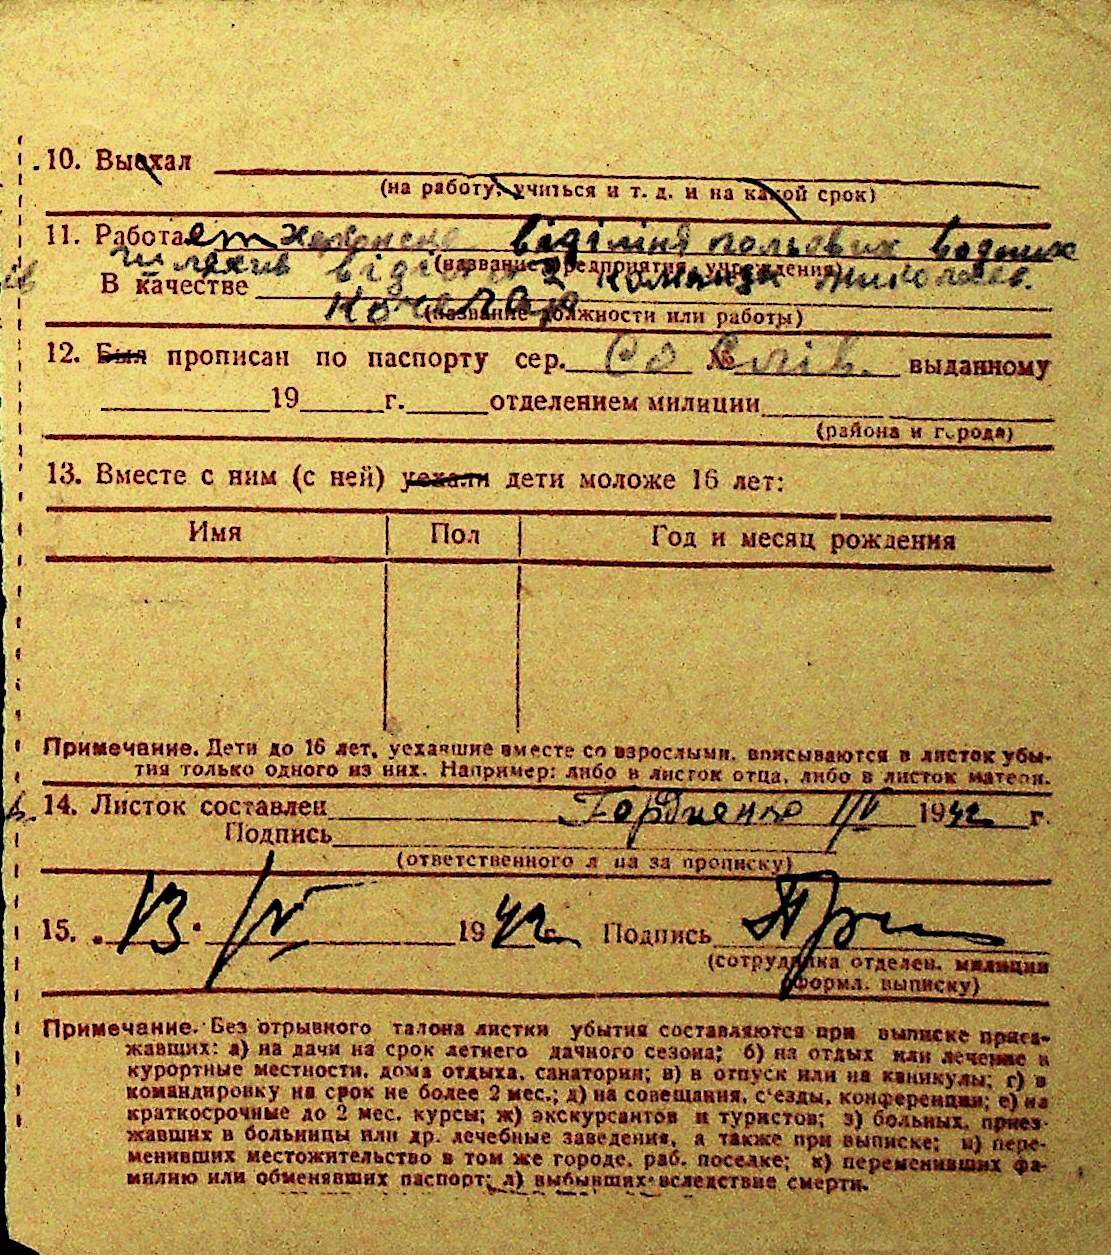 10. Выехал
(на работу, учиться и т. д. и на какой срок)
11. Работает Херсонске відділня польових водних
шляхив відділ 2 команди Николаев.
(название предприятия, учреждения)
В качестве Кочегара
(название должности или работы)
12. Был прописан по паспорту сер. № выданному
19 г. отделением милиции
(района и города)
13. Вместе с ним (с ней) уехали дети моложе 16 лет:
Имя Пол Год и месяц рождения
Примечание. Дети до 16 лет, уехавшие вместе со взрослыми, вписываются в листок убы-
тия только одного из них. Например: либо в листок отца, либо в листок матери.
14. Листок составлен Гордиенко 1/IV 1942 г.
Подпись
(ответственного л ца за прописку)
15. „13" /IV 1942 г. Подпись
(сотрудника отделен. милиции
оформл. выписку)
Примечание. Без отрывного талона листки убытия составляются при выписке приез-
жавших: а) на дачи на срок летнего дачного сезона; б) на отдых или лечение в
курортные местности, дома отдыха, санатории; в) в отпуск или на каникулы; г) в
командировку на срок не более 2 мес.; д) на совещания, с'езды, конференции; е) на
краткосрочные до 2 мес. курсы; ж) экскурсантов и туристов; з) больных, приез-
жавших в больницы или др. лечебные заведения, а также при выписке; и) пере-
менивших местожительство в том же городе, раб. поселке; к) переменивших фа-
милию или обменявших паспорт; л) выбывших вследствие смерти.